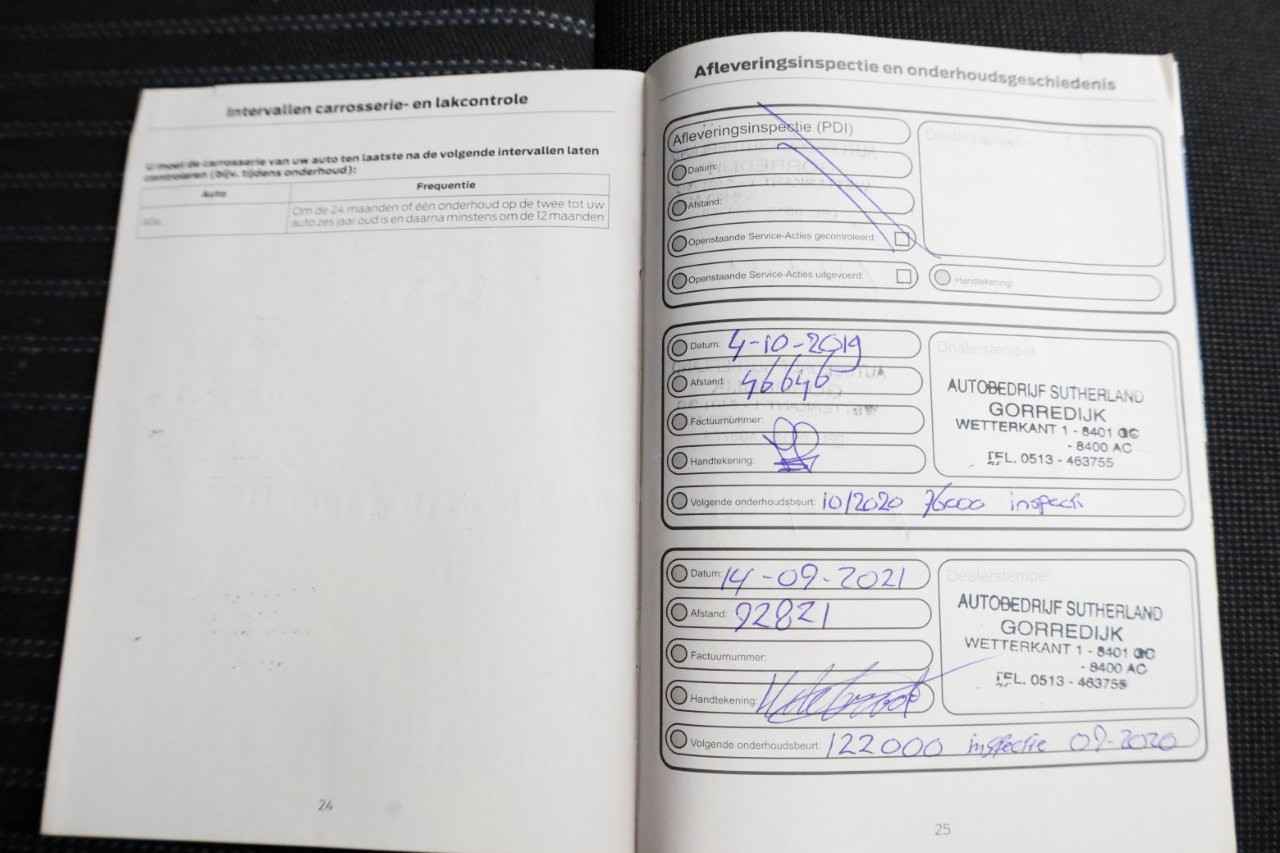 Intervallen carrosserie- en lakcontrole
U moet de carrosserie van uw auto ten laatste na de volgende intervallen laten
controleren (bijv. tijdens onderhoud):
Auto
Frequentie
Om de 24 maanden of één onderhoud op de twee tot uw
auto zes jaar oud is en daarna minstens om de 12 maanden
24
Afleveringsinspectie en onderhoudsgeschiedenis
Afleveringsinspectie (PDI)
Datum:
Afstand:
Openstaande Service-Acties gecontroleerd:
Openstaande Service-Acties uitgevoerd:
Dealerstempel
Handtekening:
Datum: 4-10-2019
Afstand: 46646
Factuurnummer:
Handtekening:
Dealerstempel
AUTOBEDRIJF SUTHERLAND
GORREDIJK
WETTERKANT 1 - 8401 GC
- 8400 AC
TEL. 0513 - 463755
Volgende onderhoudsbeurt: 10/2020 76000 inspectie
Datum: 14-09-2021
Afstand: 92821
Factuurnummer:
Handtekening:
Dealerstempel
AUTOBEDRIJF SUTHERLAND
GORREDIJK
WETTERKANT 1 - 8401 GC
- 8400 AC
TEL. 0513 - 463755
Volgende onderhoudsbeurt: 122000 inspectie 09-2020
25